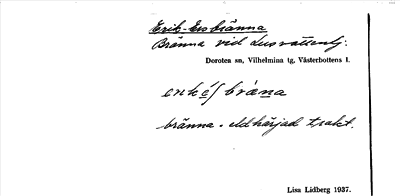 Erik-Ersbränna
Bränna vid Lusvattenbj:
Dorotea sn, Vilhelmina tg, Västerbottens l.
bränna = eldhärjad trakt.
Lisa Lidberg 1937.